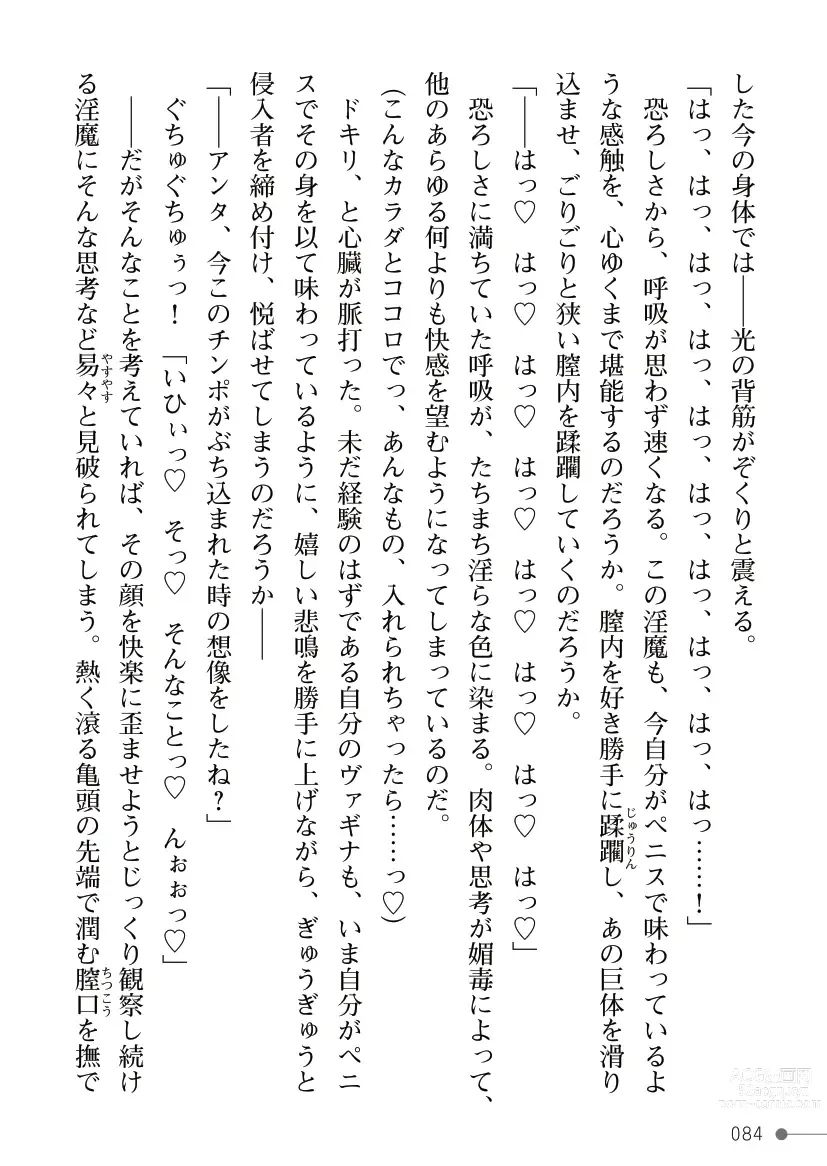 した今の身体では――光の背筋がぞくりと震える。
「はっ、はっ、はっ、はっ、はっ、はっ、はっ、はっ、はっ、はっ……！」
恐ろしさから、呼吸が思わず速くなる。この淫魔も、今自分がペニスで味わっているよ
うな感触を、心ゆくまで堪能するのだろうか。膣内を好き勝手に蹂躙じゅうりんし、あの巨体を滑り
込ませ、ごりごりと狭い膣内を蹂躙していくのだろうか。
「――はっ♡　はっ♡　はっ♡　はっ♡　はっ♡　はっ♡　はっ♡　はっ♡」
恐ろしさに満ちていた呼吸が、たちまち淫らな色に染まる。肉体や思考が媚毒によって、
他のあらゆる何よりも快感を望むようになってしまっているのだ。
(こんなカラダとココロでっ、あんなもの、入れられちゃったら……っ♡)
ドキリ、と心臓が脈打った。未だ経験のはずである自分のヴァギナも、いま自分がペニ
スでその身を以て味わっているように、嬉しい悲鳴を勝手に上げながら、ぎゅうぎゅうと
侵入者を締め付け、悦ばせてしまうのだろうか――
「――アンタ、今このチンポがぶち込まれた時の想像をしたね？」
ぐちゅぐちゅぅっ！　「いひぃっ♡　そっ♡　そんなことっ♡　んぉぉっ♡」
――だがそんなことを考えていれば、その顔を快楽に歪ませようとじっくり観察し続け
る淫魔にそんな思考など易々やすやすと見破られてしまう。熱く滾る亀頭の先端で潤む膣口ちつこうを撫で
084